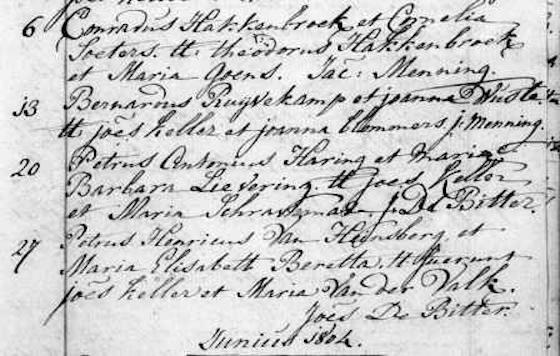 6 Conradus Hakkenbroek et Cornelia
Soeters. tt: theodorus Hakkenbroek
et Maria Goens. Jac: Menning.
13 Bernardus Ruyvekamp et joanna
tt joës keller et joanna blommers j: Menning.
20 Petrus Antonius Haring et Maria
Barbara Lievering. tt joës Keller
et Maria j: De Bitter.
27 Petrus Henricus Van Heinsberg et
Maria Elisabett Beretta, tt fuerunt
joës keller et Maria Van der Valk.
Joës De Bitter.
Junius 1804.